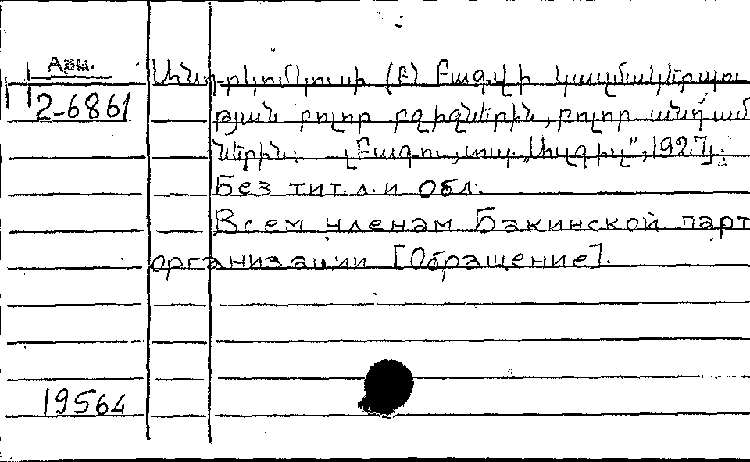 Арм.
2-6861
Բագվի կազմակերպու
թյան բոլոր բջիջներին, բոլոր անդամ
ներին. [Բագու, 1927].
Без тит. л. и обл.
Всем членам Бакинской парт
организации [Обращение].
19564